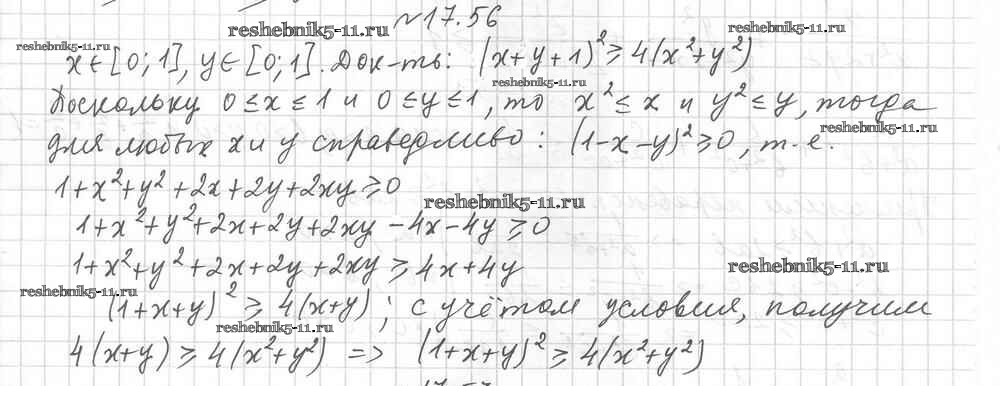 №17.56
reshebnik5-11.ru reshebnik5-11.ru reshebnik5-11.ru
x∈[0;1], y∈[0;1]. Док-ть: (x+y+1)²≥4(x²+y²)
reshebnik5-11.ru
Поскольку 0≤x≤1 и 0≤y≤1, то x²≤x и y²≤y, тогда
reshebnik5-11.ru
для любых x и y справедливо: (1-x-y)²≥0, т.е.
1+x²+y²+2x+2y+2xy≥0
reshebnik5-11.ru
1+x²+y²+2x+2y+2xy-4x-4y≥0
1+x²+y²+2x+2y+2xy≥4x+4y
reshebnik5-11.ru
reshebnik5-11.ru
(1+x+y)²≥4(x+y); с учётом условия, получим
reshebnik5-11.ru
4(x+y)≥4(x²+y²) => (1+x+y)²≥4(x²+y²)